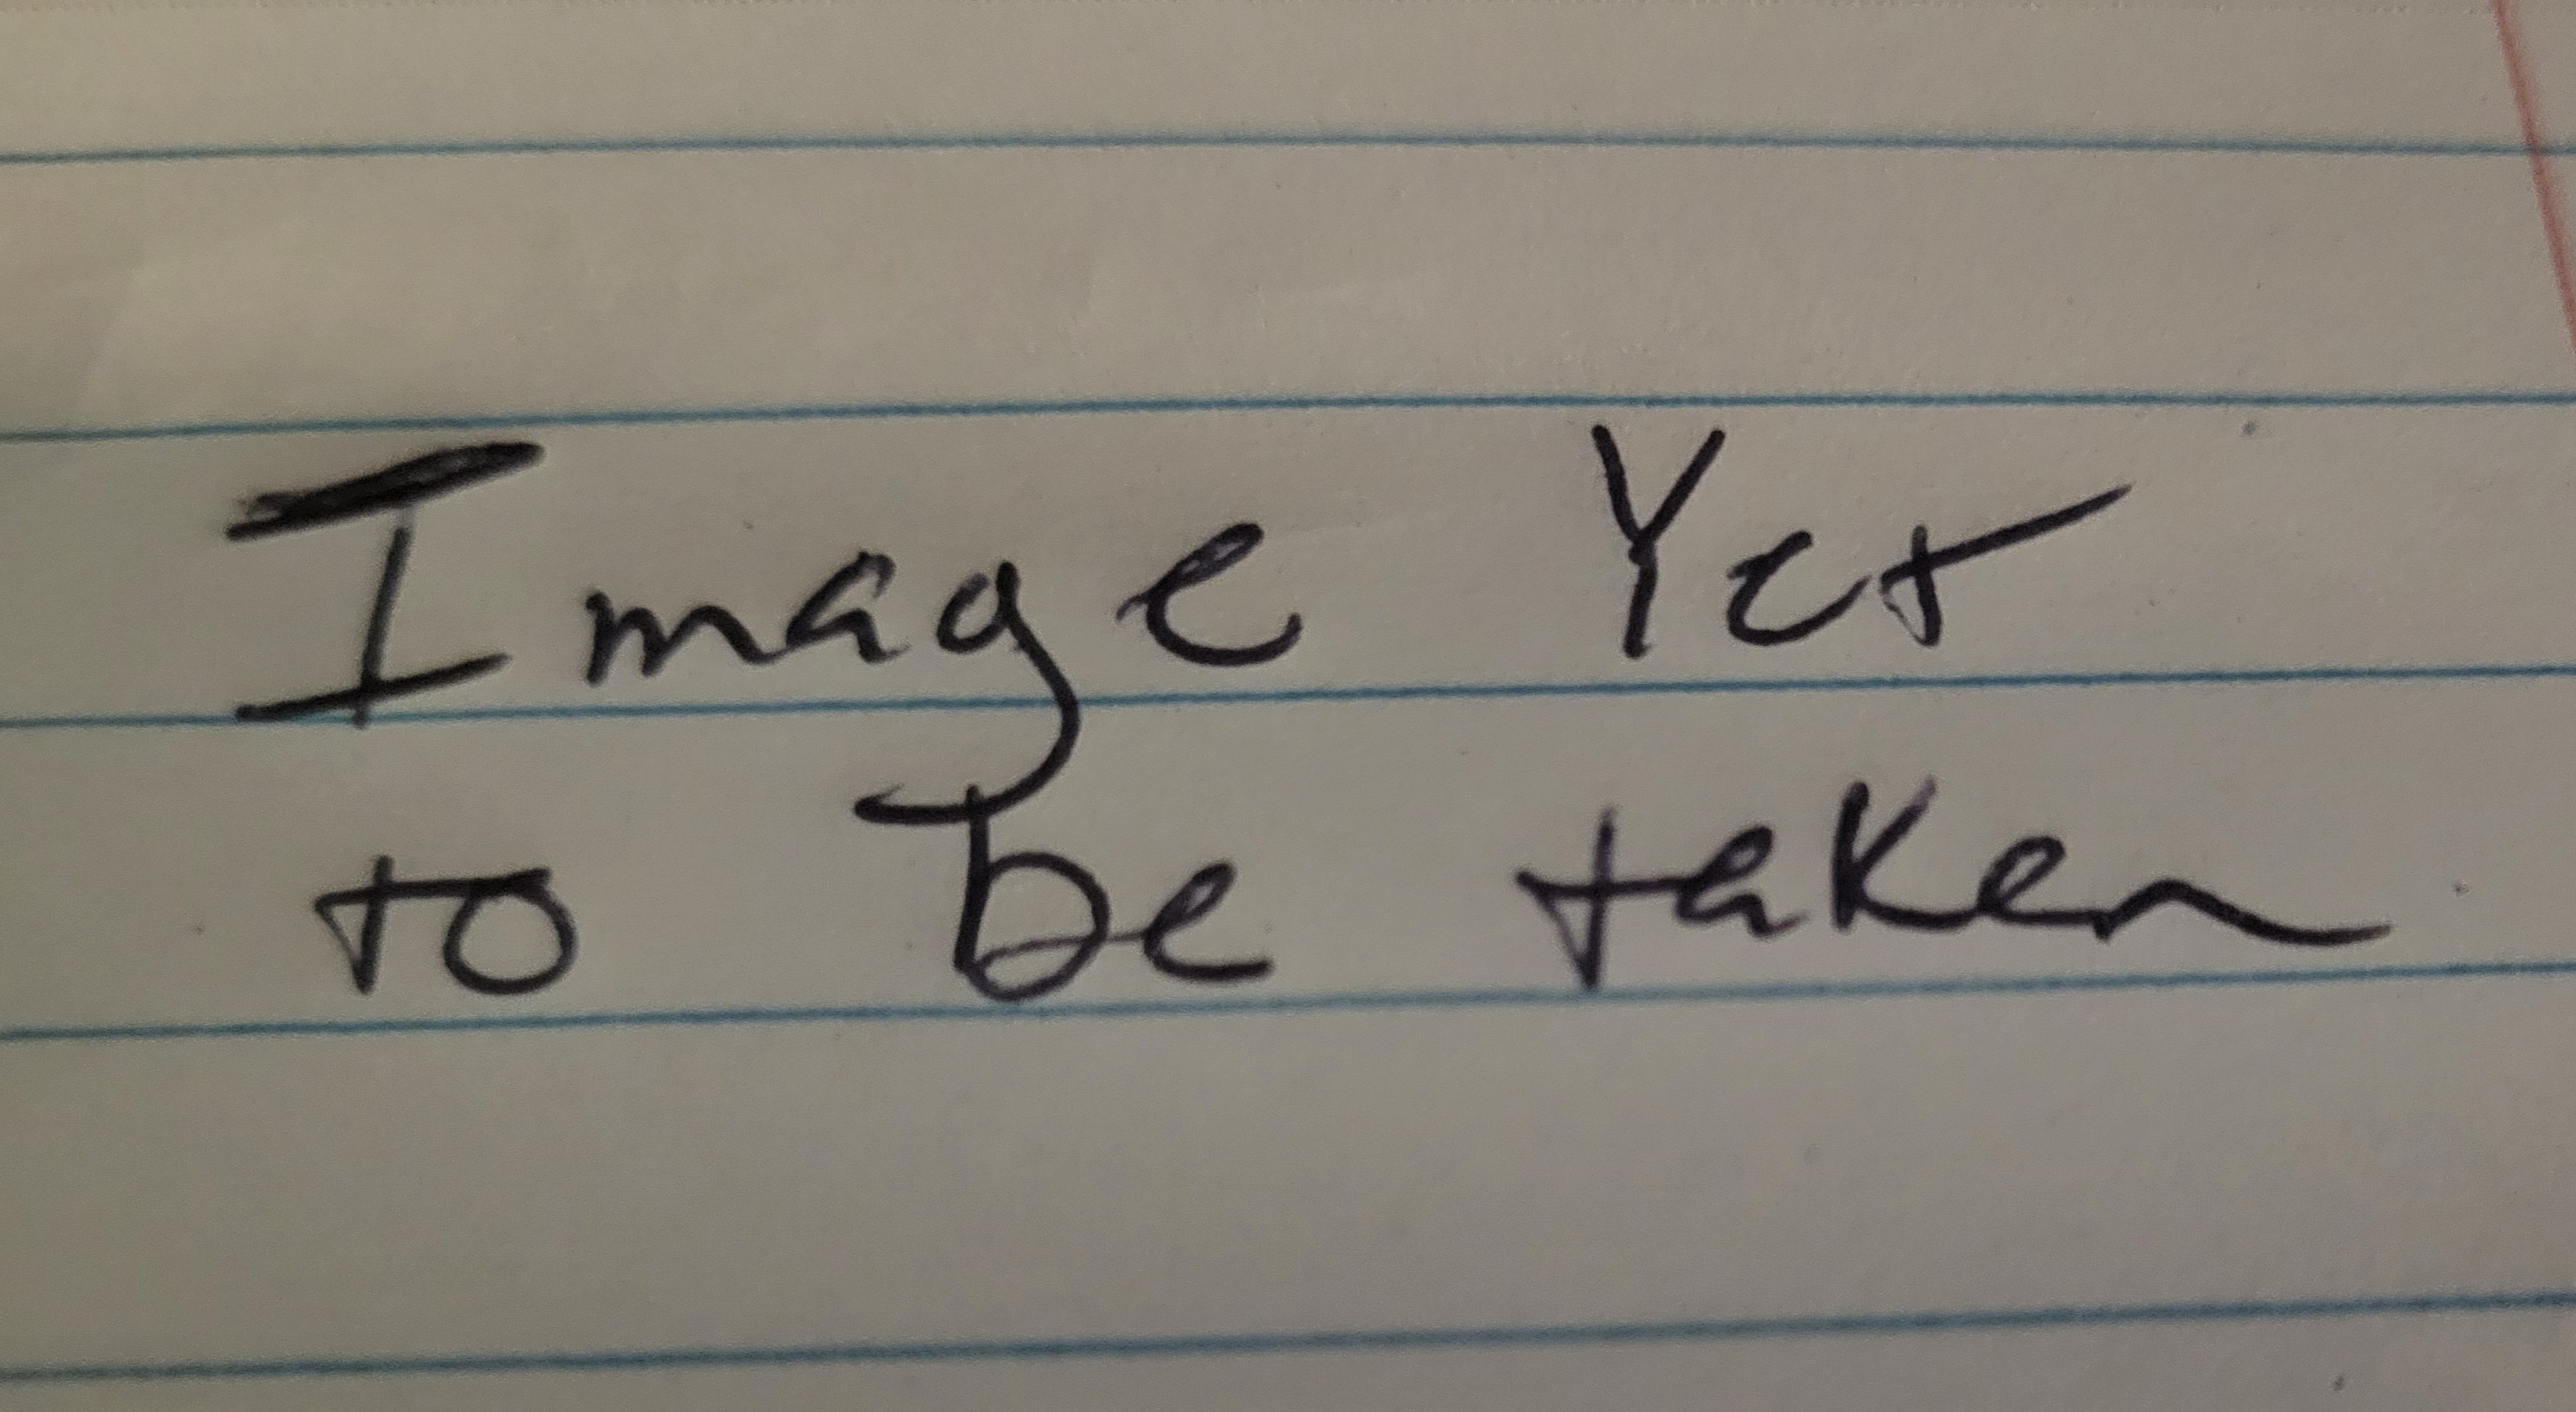 Image Yet
to be taken